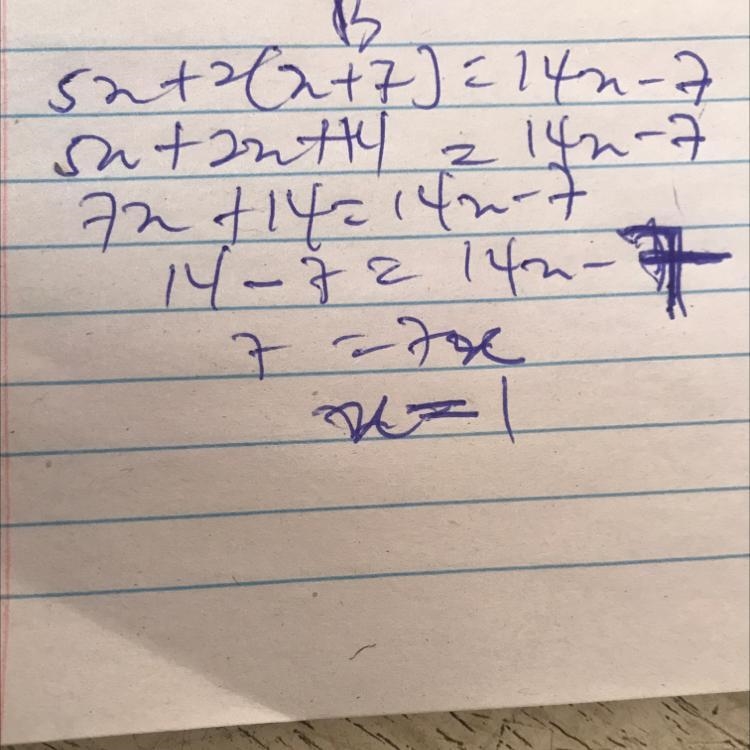 B
5x+2(x+7)=14x-7
5x+2x+14 = 14x-7
7x+14=14x-7
14-7=14x-7
7=7x
x=1